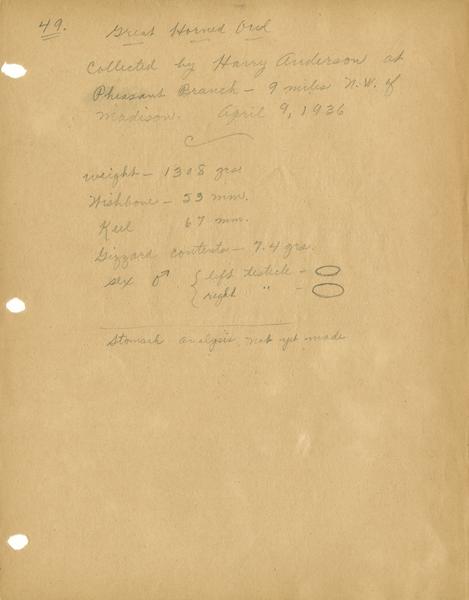 49.
Great Horned Owl
Collected by Harry Anderson at
Pheasant Branch - 9 miles N.W. of
Madison. April 9, 1936
weight - 1308 grs
Wishbone - 53 mm.
Keel 67 mm.
Gizzard contents - 7.4 grs.
sex ♂ { left testicle -
right " -
Stomach analysis not yet made